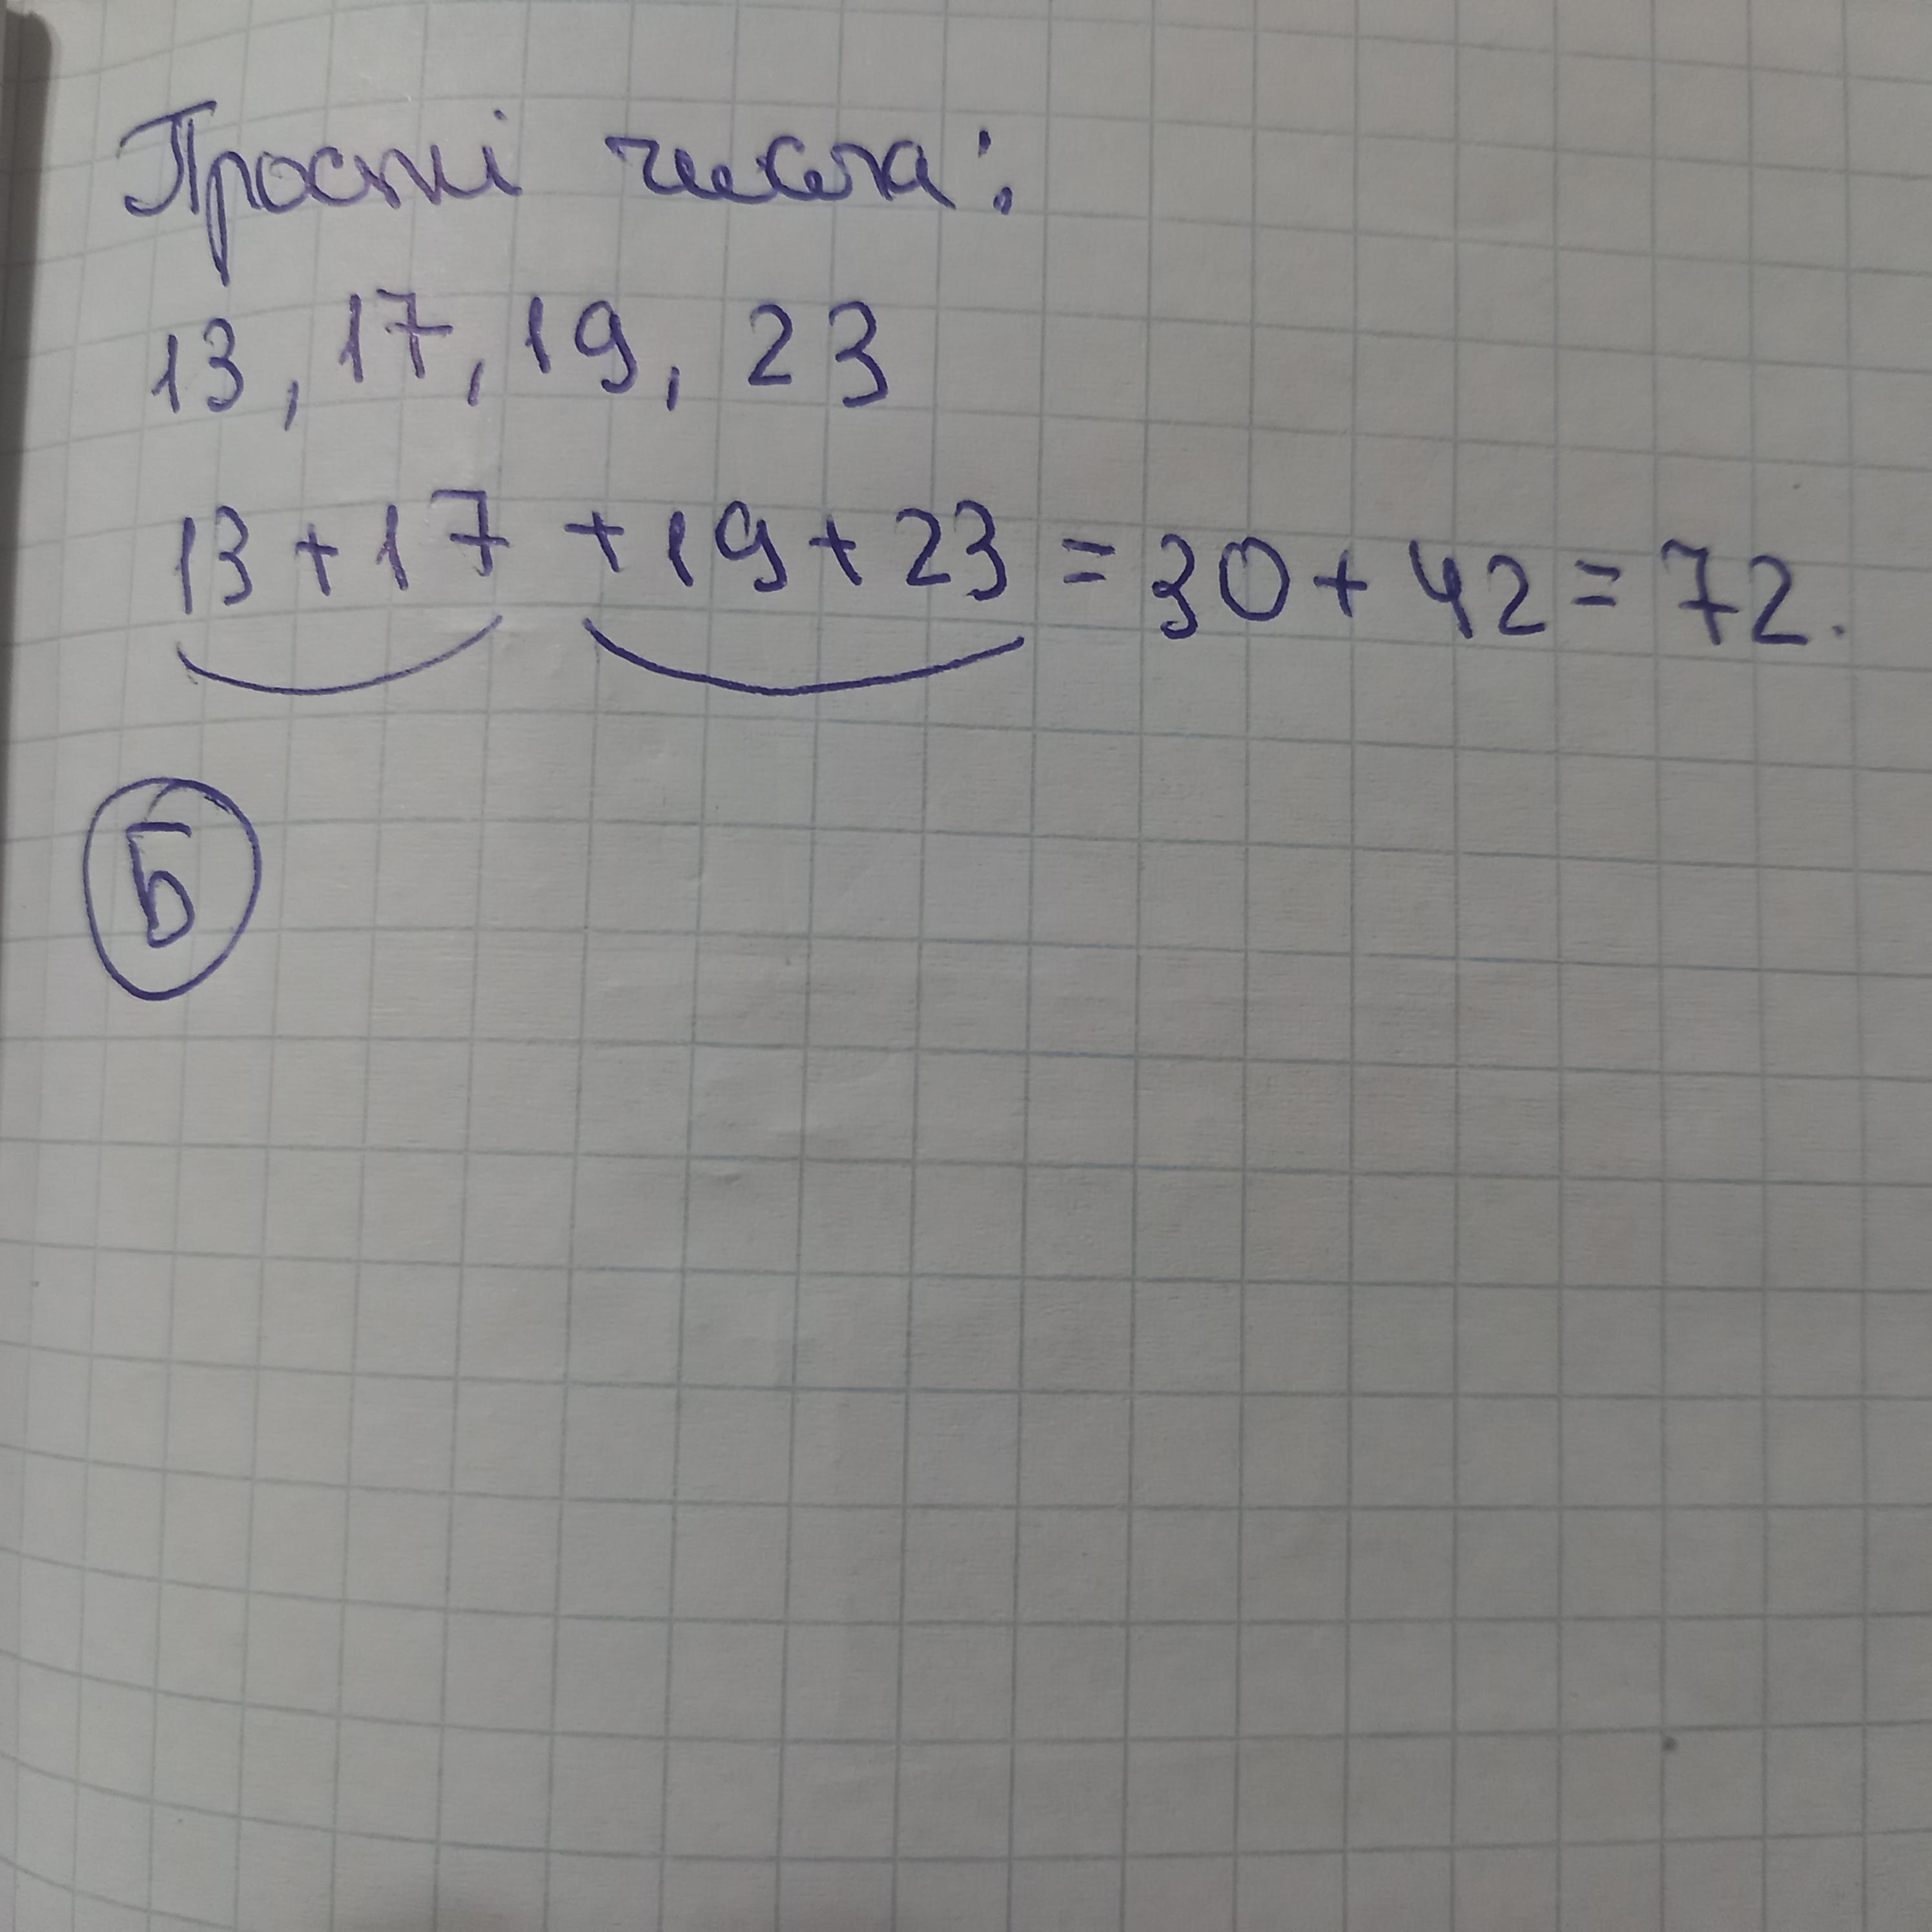 Прості числа:
13, 17, 19, 23
13 + 17 + 19 + 23 = 30 + 42 = 72.
Б